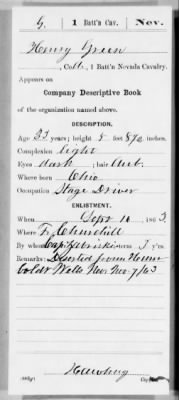 G. 1 Batt'n Cav. Nev.
Henry Green
, Co. , 1 Batt'n Nevada Cavalry.
Appears on
Company Descriptive Book
of the organization named above.
DESCRIPTION.
Age 33 years; height 5 feet 8½ inches.
Complexion light
Eyes dark ; hair Aub.
Where born Ohio
Occupation Stage Driver
ENLISTMENT.
When Sept 16 , 1863.
Where Ft Churchill
By whom Capt Zabriskie term 3 y'rs.
Remarks: Deserted from
Nev. Nov 7/63